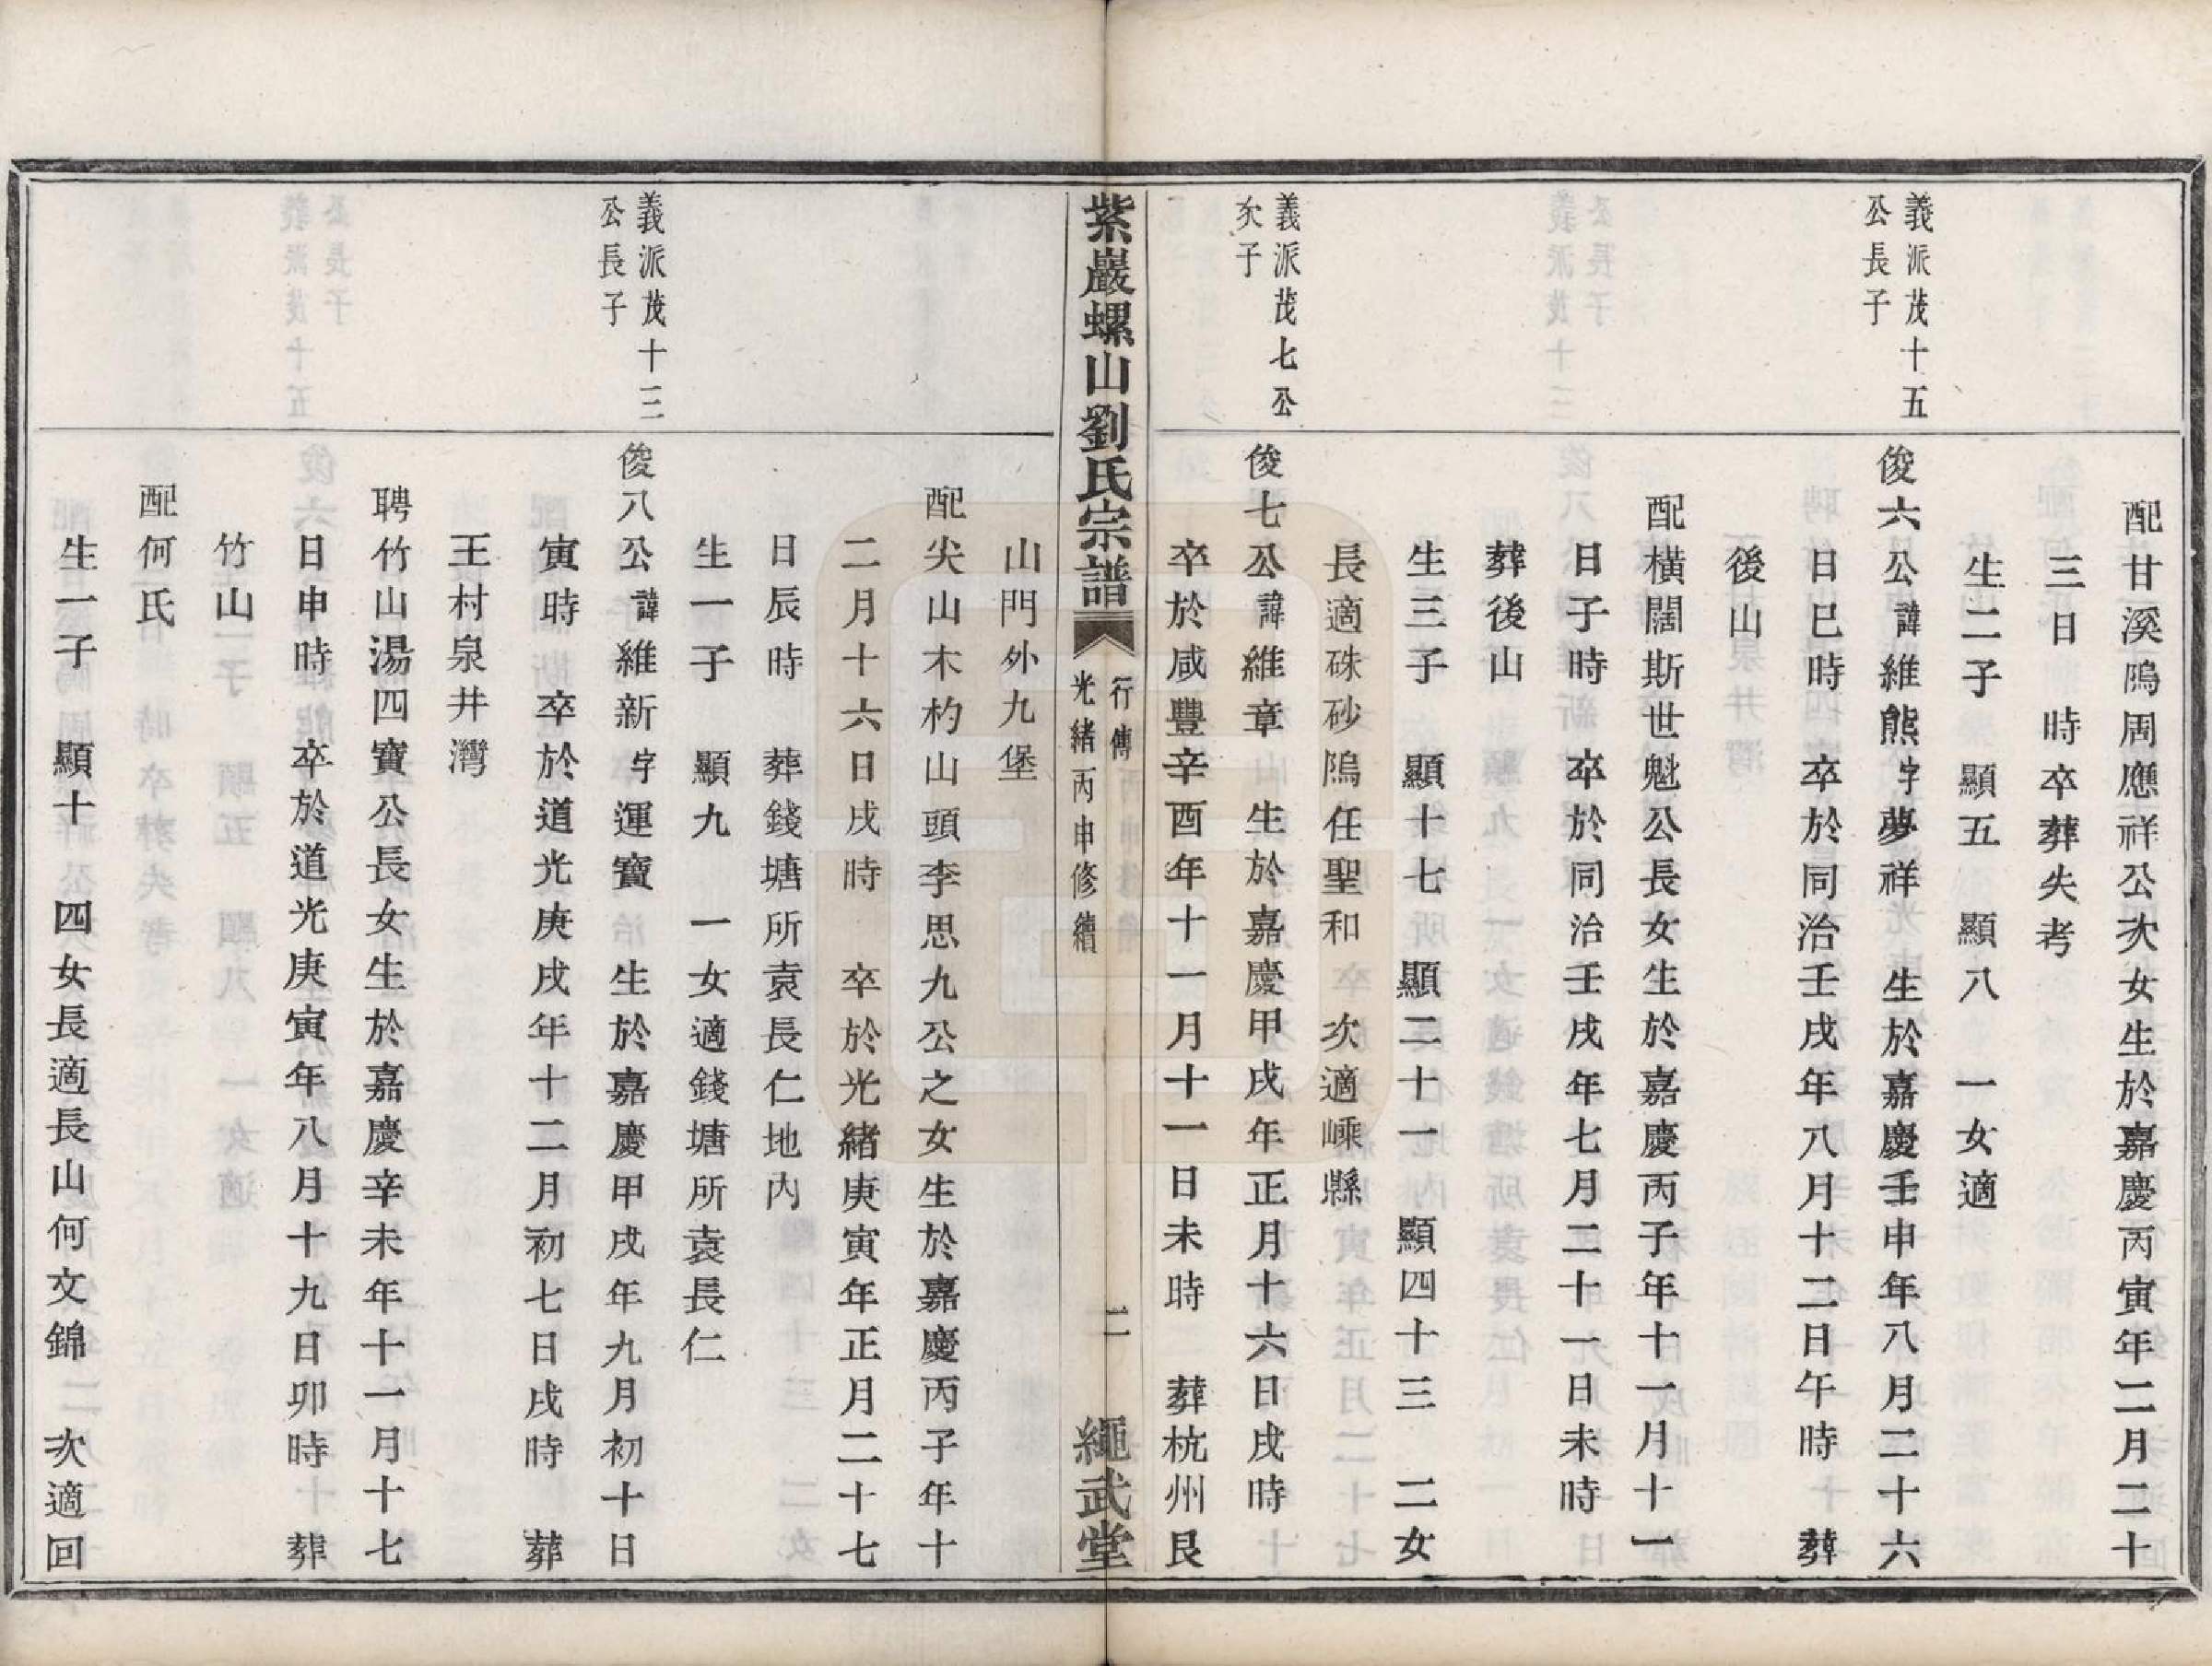 配甘溪隖周應祥公次女生於嘉慶丙寅年二月二十
三日　時卒葬失考
生二子　顯五　顯八　一女適
義派茂十五
公長子
俊六公諱維熊字夢祥　生於嘉慶壬申年八月二十六
日巳時　卒於同治壬戌年八月十二日午時　葬
後山
配橫闊斯世魁公長女生於嘉慶丙子年十一月十一
日子時　卒於同治壬戌年七月二十一日未時
葬後山
生三子　顯十七　顯二十一　顯四十三　二女
長適硃砂隖任聖和　次適嵊縣
義派茂七公
次子
俊七公諱維章　生於嘉慶甲戌年正月十六日戌時
卒於咸豐辛酉年十一月十一日未時　葬杭州艮
紫巖螺山劉氏宗譜
行傳
光緒丙申修續
二
繩武堂
山門外九堡
配尖山木杓山頭李思九公之女生於嘉慶丙子年十
二月十六日戌時　卒於光緒庚寅年正月二十七
日辰時　葬錢塘所袁長仁地內
生一子　顯九　一女適錢塘所袁長仁
義派茂十三
公長子
俊八公諱維新字運寶　生於嘉慶甲戌年九月初十日
寅時　卒於道光庚戌年十二月初七日戌時　葬
王村泉井灣
聘竹山湯四寶公長女生於嘉慶辛未年十一月十七
日申時　卒於道光庚寅年八月十九日卯時　葬
竹山
配何氏
生一子　顯十　四女長適長山何文錦　次適回